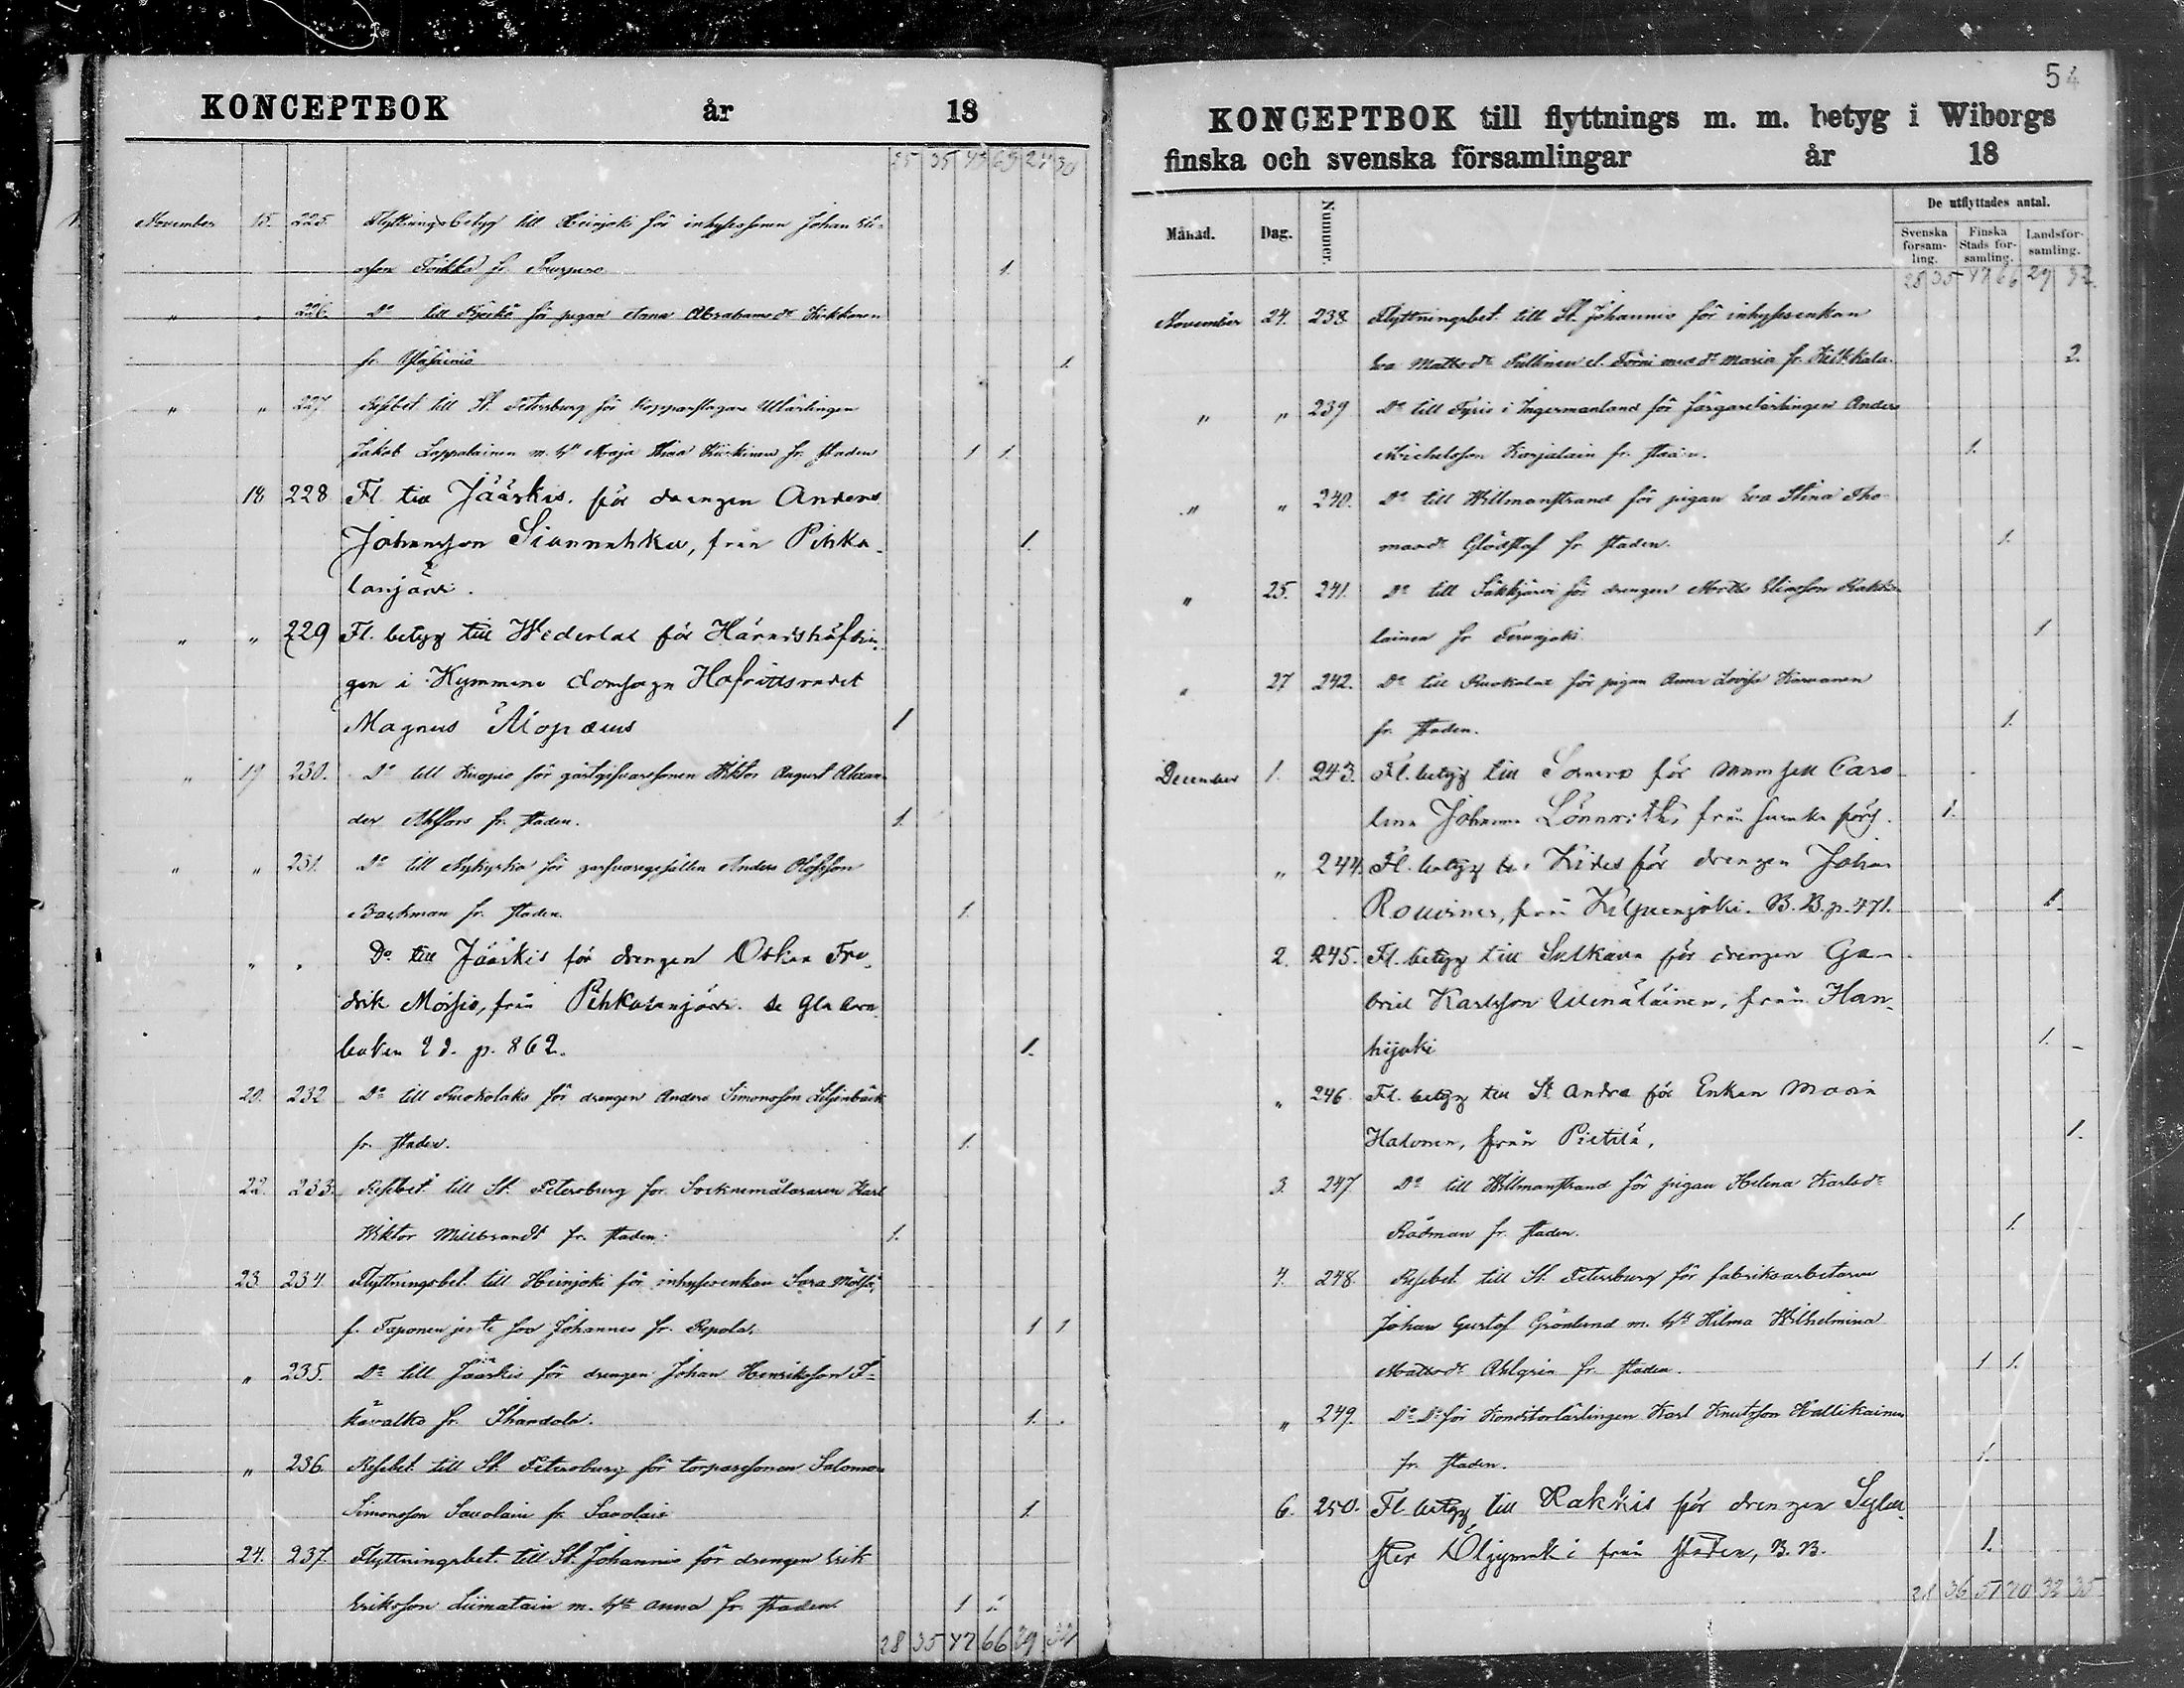 KONCEPTBOK år 18
25 35 43 63 24 30
November 15. 225. Flyttningsbetyg till Heinjoki för inhysessonen Johan
Toikka fr. 1.
" " 226. Do till Björkö för pigan Anna Abrahamsdr Kukkonen
fr. 1.
" " 227. Resebet. till St. Petersburg för Kopparslagare Utlärlingen
Jakob Lappalainen m. h. Maja Stina fr. staden 1 1.
18 228 Fl. till Jääskis. för drengen Anders
Johansson från Pihka- 1.
lanjärvi.
" " 229 Fl. betyg till Wederlax för Häradshöfdin-
gen i Kymmene domsaga Hofrättsrådet
Magnus Alopæus 1
" 19 230. Do till Kuopio för gästgifvaresonen Viktor August Alexan-
der Ahlfors fr. staden. 1.
" " 231. Do till Nykyrka för garfvaregesällen Anders Olofsson
Backman fr. staden. 1.
" " Do till Jääskis för drengen Oskar Fre-
drik Möhsis, från Pihkalanjärvi. Se Gla
boken 2 d. p. 862. 1.
20. 232 Do till Ruokolaks för drengen Anders Simonsson Liljenbäck
fr. staden. 1.
22. 233. Resebet. till St. Petersburg för Karl
Viktor Millbrandt fr. staden. 1.
23. 234. Flyttningsbet. till Heinjoki för inhysesenkan Sara Mölsä,
f. Taponen jemte son Johannes fr. Repola. 1 1
" 235. Do till Jääskis för drengen Johan Henriksson I-
kävalko fr. Ihandola. 1.
" 236. Resebet. till St. Petersburg för torparesonen Salomon
Simonsson Savolain fr. Savolais 1.
24. 237. Flyttningsbet. till St. Johannis för drengen Erik
Eriksson Liimatain m. h. Anna fr. staden 1 1.
28 35 47 66 29 32
54
KONCEPTBOK till flyttnings m. m. betyg i Wiborgs
finska och svenska församlingar år 18
Månad. Dag. Nummer. De utflyttades antal.
Svenska församling. Finska Stads församling. Landsförsamling.
28 35 47 66 29 32.
November 24. 238. Flyttningsbet. till St. Johannis för inhysesenkan
Eva Mattsdr Pullinen f. Törni med dr Maria fr. Kilkkala. 2.
" " 239 Do till Tyris i Ingermanland för färgarelärlingen Anders
Michelsson Karjalain fr. staden. 1.
" " 240. Do till Willmanstrand för pigan Eva Stina Tho-
masdr Glödstaf fr. staden. 1.
" 25. 241. Do till Säkkjärvi för drengen Matts Eliasson
lainen fr. Tervajoki. 1
" 27 242. Do till Ruokolax för pigan Anna Lovisa
fr. staden. 1.
December 1. 243. Fl. betyg till Somero för mamsell Caro-
lina Johanna från svenska förs. 1.
" 244. Fl. betyg till Kides för drengen Johan
Rouvinen, från Kilpeenjoki. B. B. p. 471. 1.
2. 245. Fl. betyg till Sulkava för drengen Ga-
briel Karlsson från Han-
hijoki 1.
" 246. Fl. betyg till St. Andræ för Enkan Maria
Halonen, från Pietilä, 1.
3. 247 Do till Willmanstrand för pigan Helena Karlsdr
Rådman fr. staden. 1.
4. 248. Resebet. till St. Petersburg för fabriksarbetaren
Johan Gustaf Grönlund m. h. Hilma Wilhelmina
Mattsdr Ahlgrén fr. staden. 1 1.
" 249. Do Do för Konditorlärlingen Karl Knutsson Hallikainen
fr. staden. 1.
6. 250. Fl. betyg till Räknis för drengen Sylve-
ster Öljymäki från staden, B. B. 1.
28 36 51 70 32 35